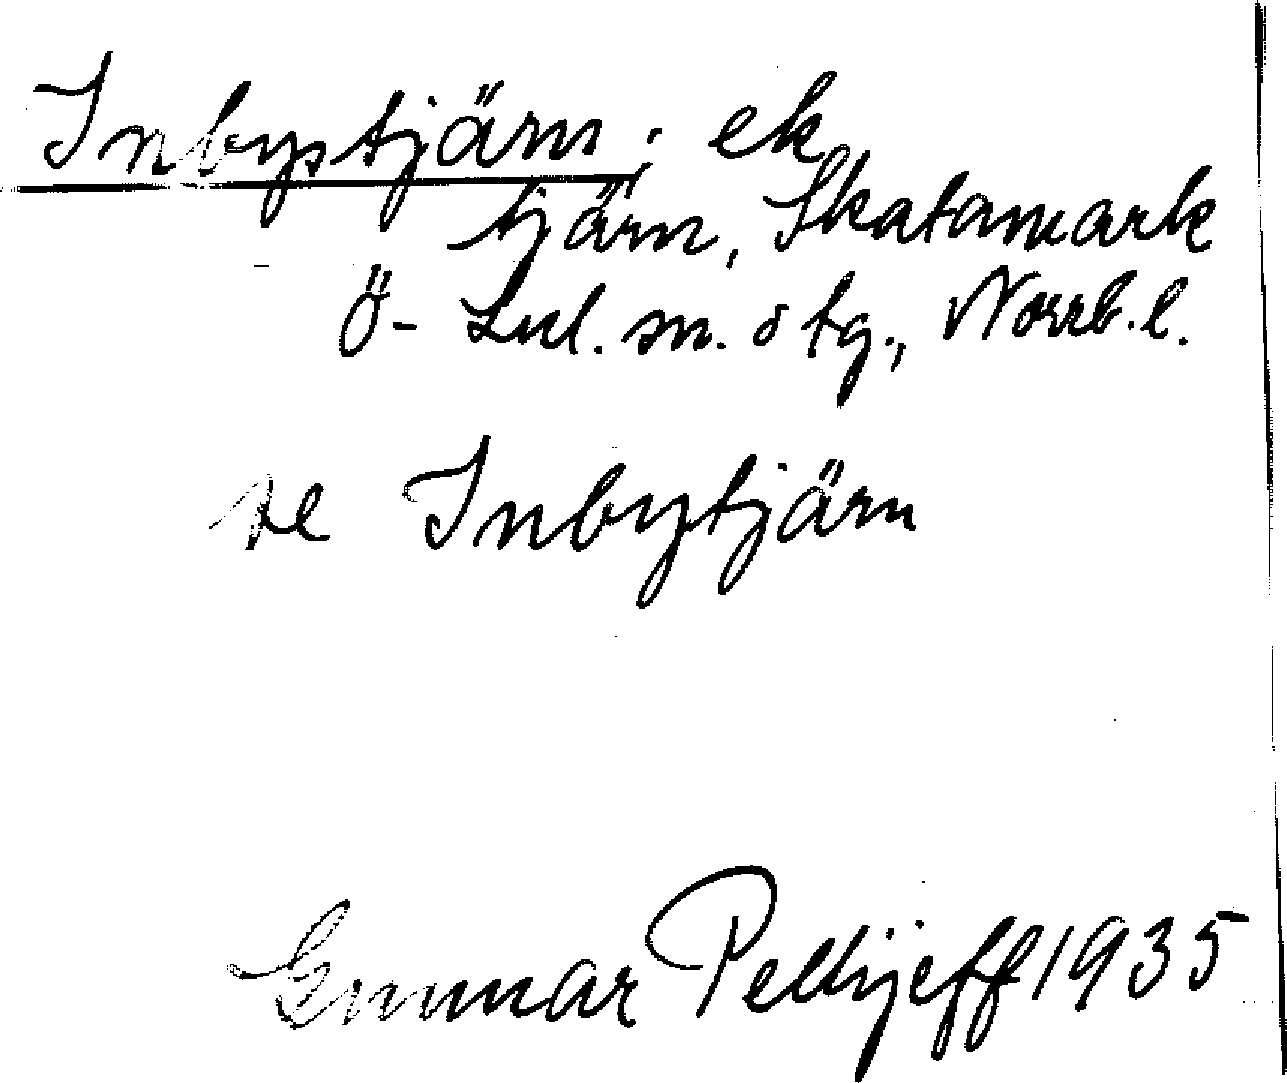 Inbystjärn; ek
tjärn, Skatamark
Ö- Lul. sn. o tg., Norrb. l.
se Inbytjärn
Gunnar Pellijeff 1935